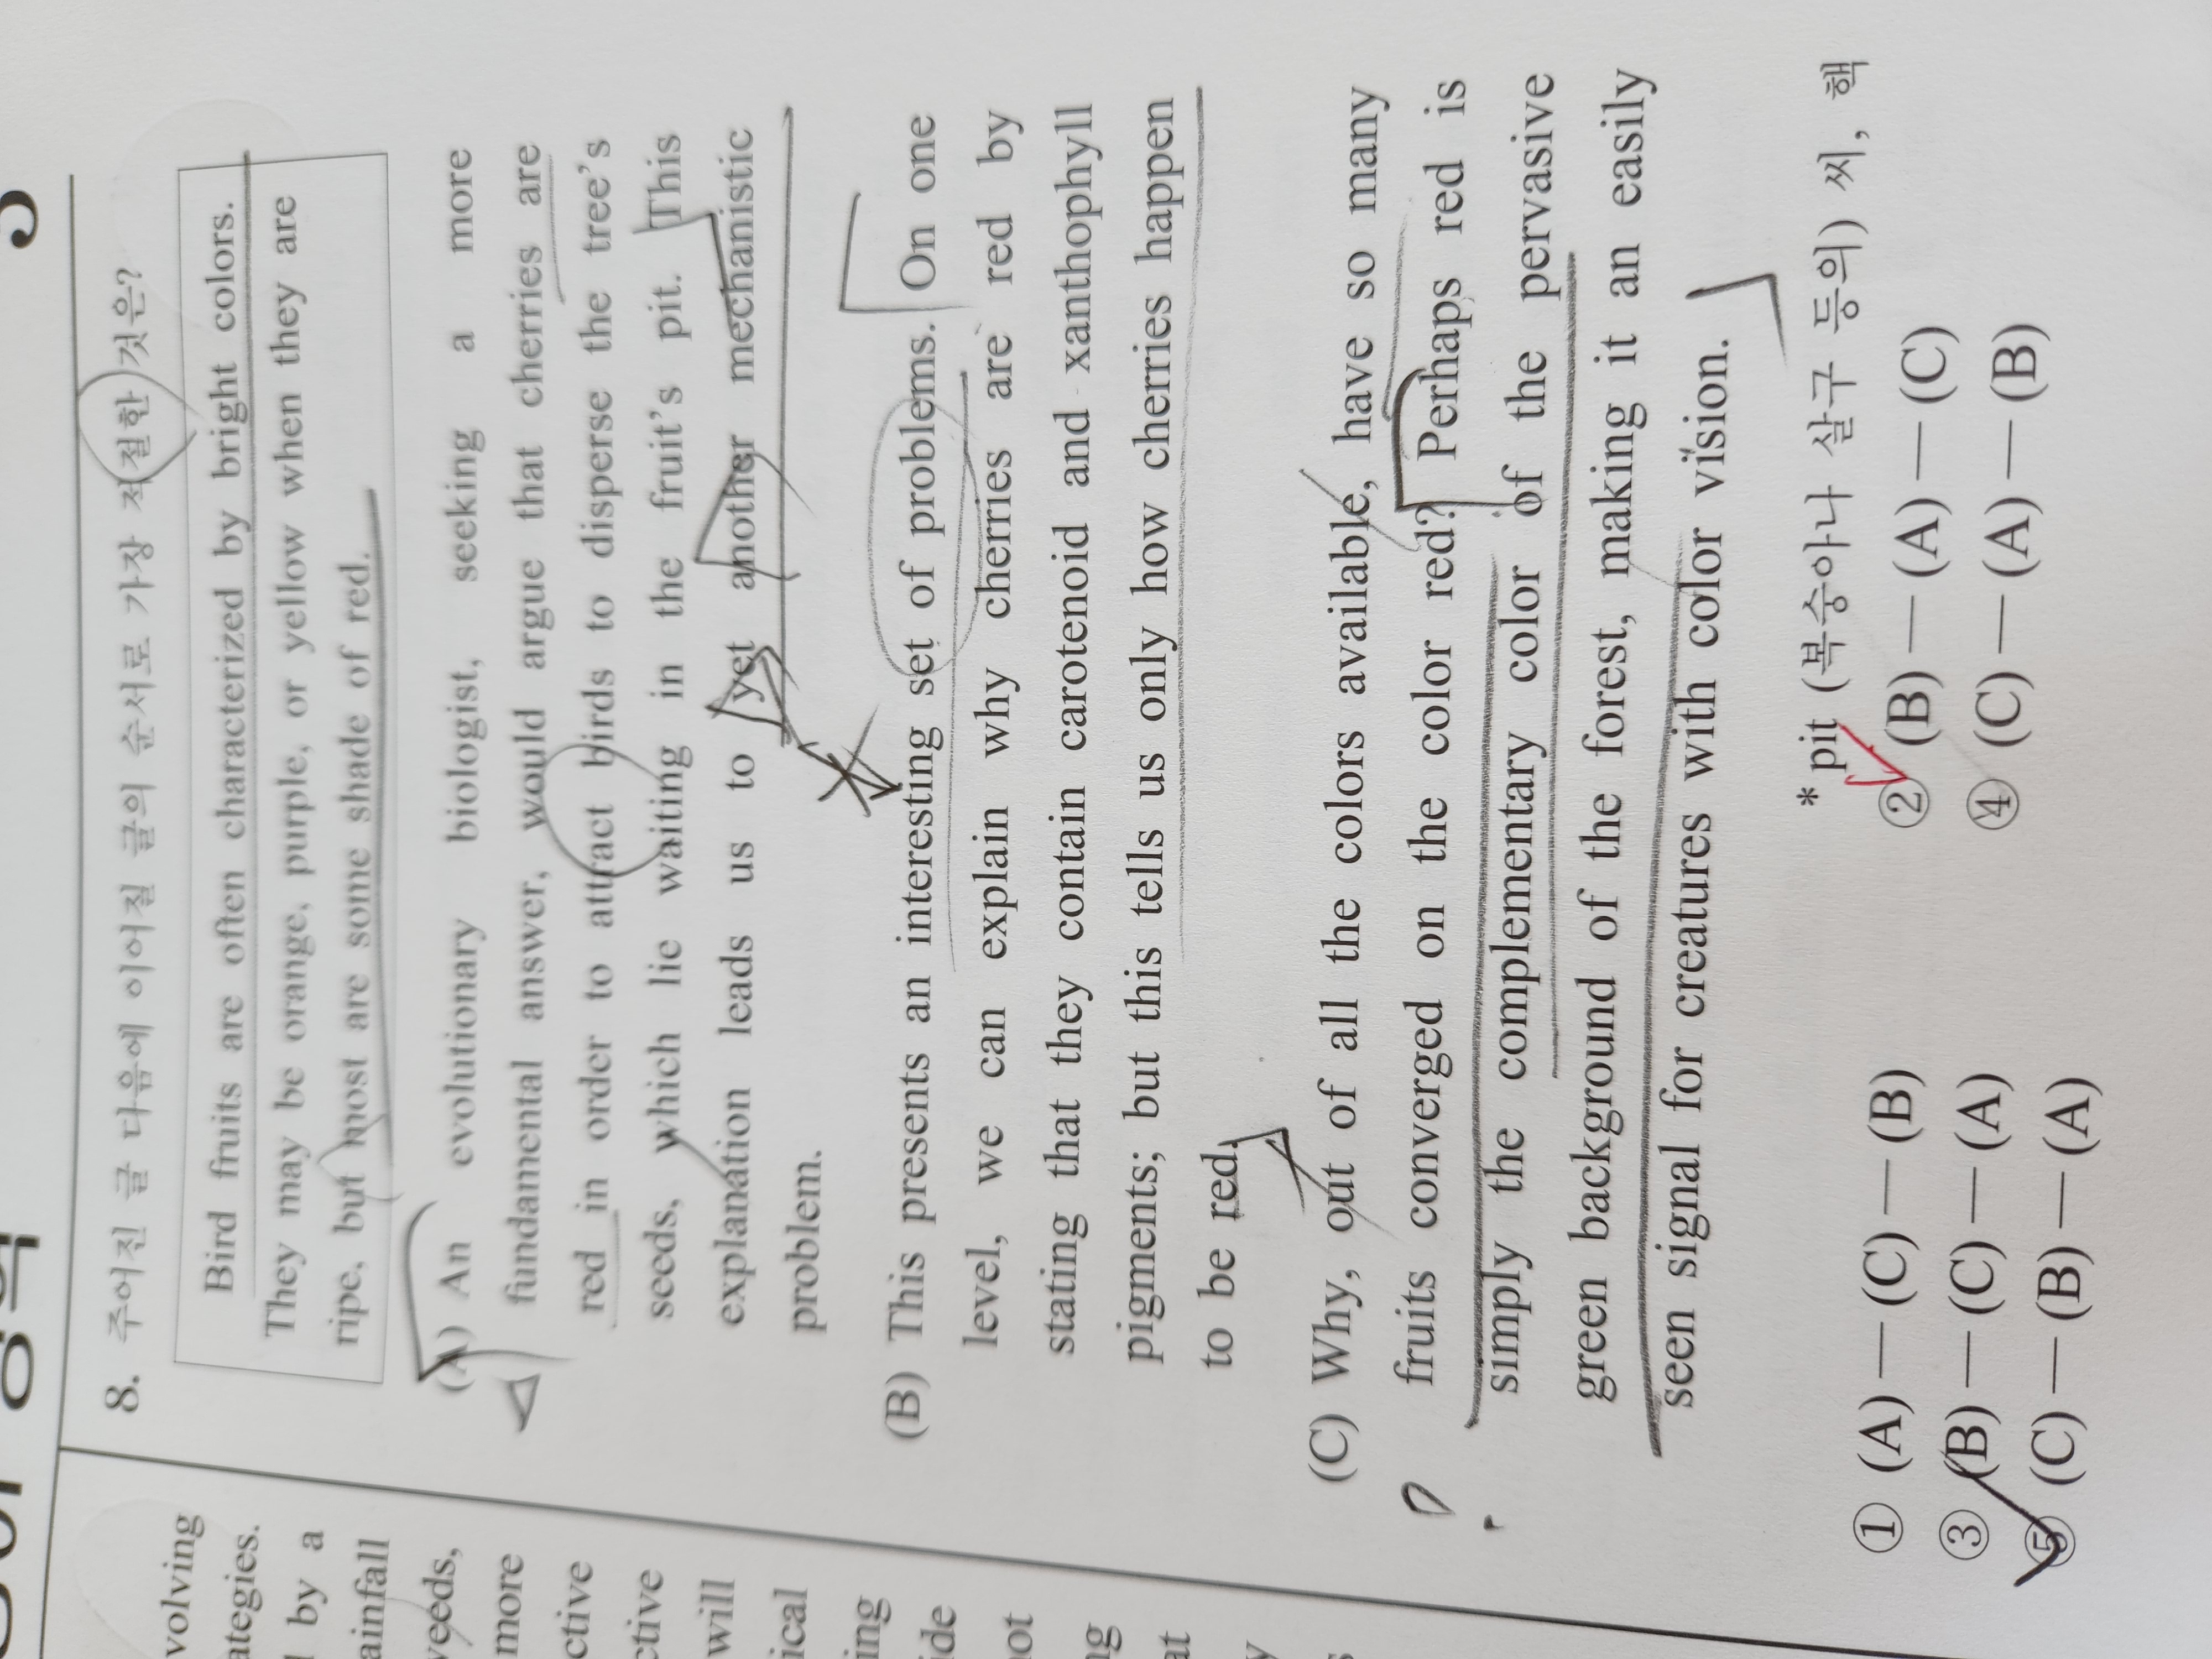 5
volving
ategies.
by a
ainfall
veeds,
more
ctive
ctive
will
ical
ing
ide
not
ng
at
8. 주어진 글 다음에 이어질 글의 순서로 가장 적절한 것은?
Bird fruits are often characterized by bright colors.
They may be orange, purple, or yellow when they are
ripe, but most are some shade of red.
(A) An evolutionary biologist, seeking a more
fundamental answer, would argue that cherries are
red in order to attract birds to disperse the tree's
seeds, which lie waiting in the fruit's pit. This
explanation leads us to yet another mechanistic
problem.
(B) This presents an interesting set of problems. On one
level, we can explain why cherries are red by
stating that they contain carotenoid and xanthophyll
pigments; but this tells us only how cherries happen
to be red.
(C) Why, out of all the colors available, have so many
fruits converged on the color red? Perhaps red is
simply the complementary color of the pervasive
green background of the forest, making it an easily
seen signal for creatures with color vision.
*pit (복숭아나 살구 등의) 씨, 핵
① (A) — (C) — (B)
② (B) — (A) — (C)
③ (B) — (C) — (A)
④ (C) — (A) — (B)
⑤ (C) — (B) — (A)